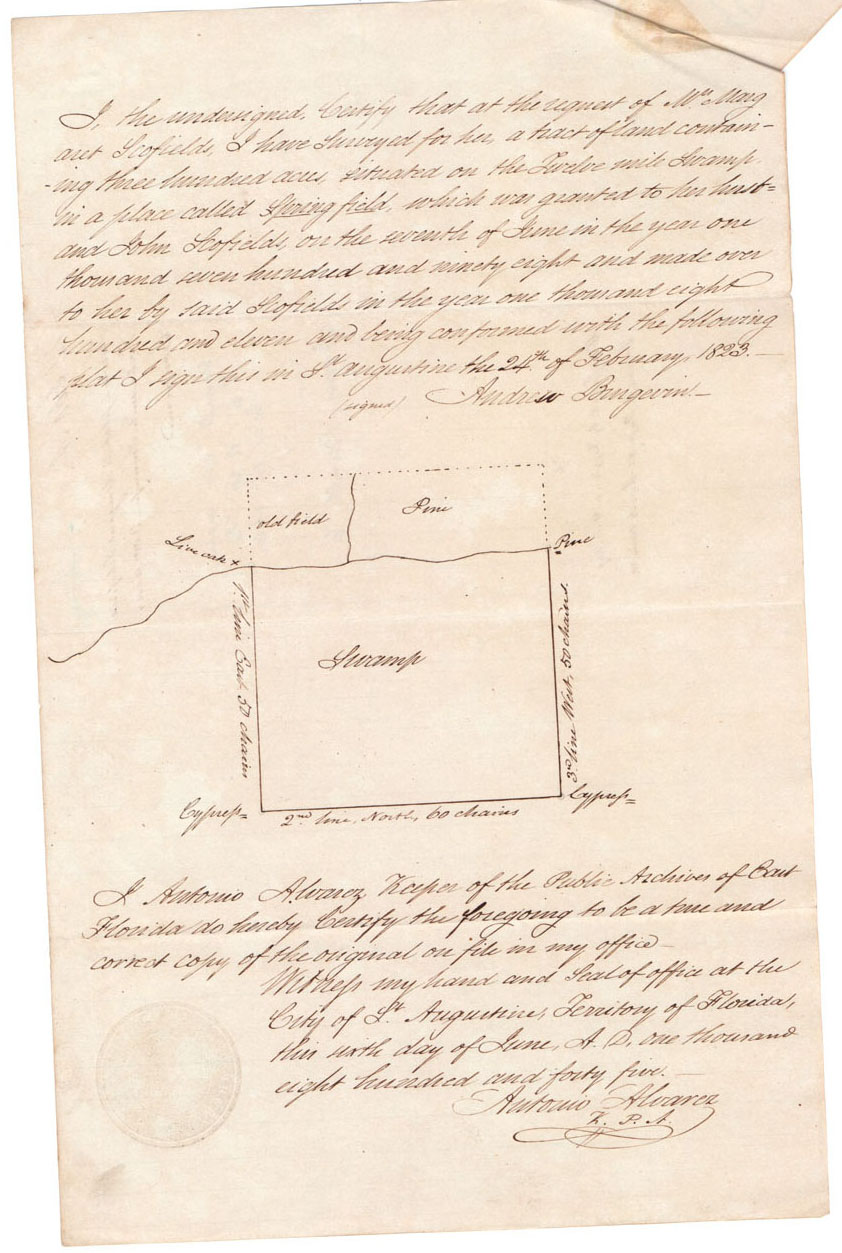 I, the undersigned, Certify that at the request of Mrs Marg
aret Scofields, I have Surveyed for her, a tract of land contain-
-ing three hundred acres, situated on the Twelve mile Swamp,
in a place called Springfield, which was granted to her husb=
and John Scofields, on the seventh of June in the year one
thousand seven hundred and ninety eight and made over
to her by said Scofields in the year one thousand eight
hundred and eleven and being conformed with the following
plat I sign this in St. Augustine the 24th of February, 1823.—
(signed) Andrew Burgevin.—
old field
Pine
Live oak x
Pine
1st line East 50 chains
Swamp
3rd line West, 50 chains.
Cypress=
2nd line, North, 60 chains
Cypress=
I Antonio Alvarez Keeper of the Public Archives of East
Florida do hereby Certify the foregoing to be a true and
correct copy of the original on file in my office—
Witness my hand and Seal of office at the
City of St. Augustine, Territory of Florida,
this sixth day of June, A. D. one thousand
eight hundred and forty five.—
Antonio Alvarez
K. P. A.